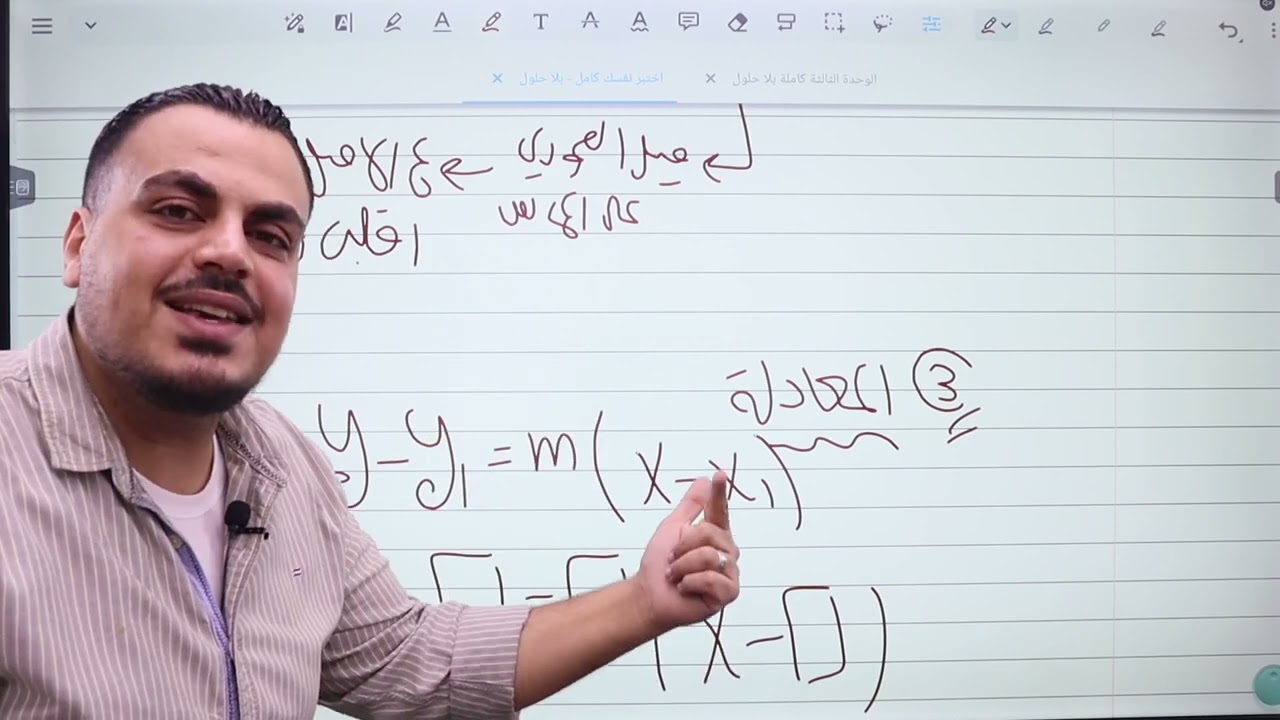 اختبر نفسك كامل - بلا حلول
الوحدة الثالثة كاملة بلا حلول
ميل العمودي ← ع الاصل
على المماس
اقلب
③ المعادلة
y - y₁ = m(x - x₁)
(x - □)